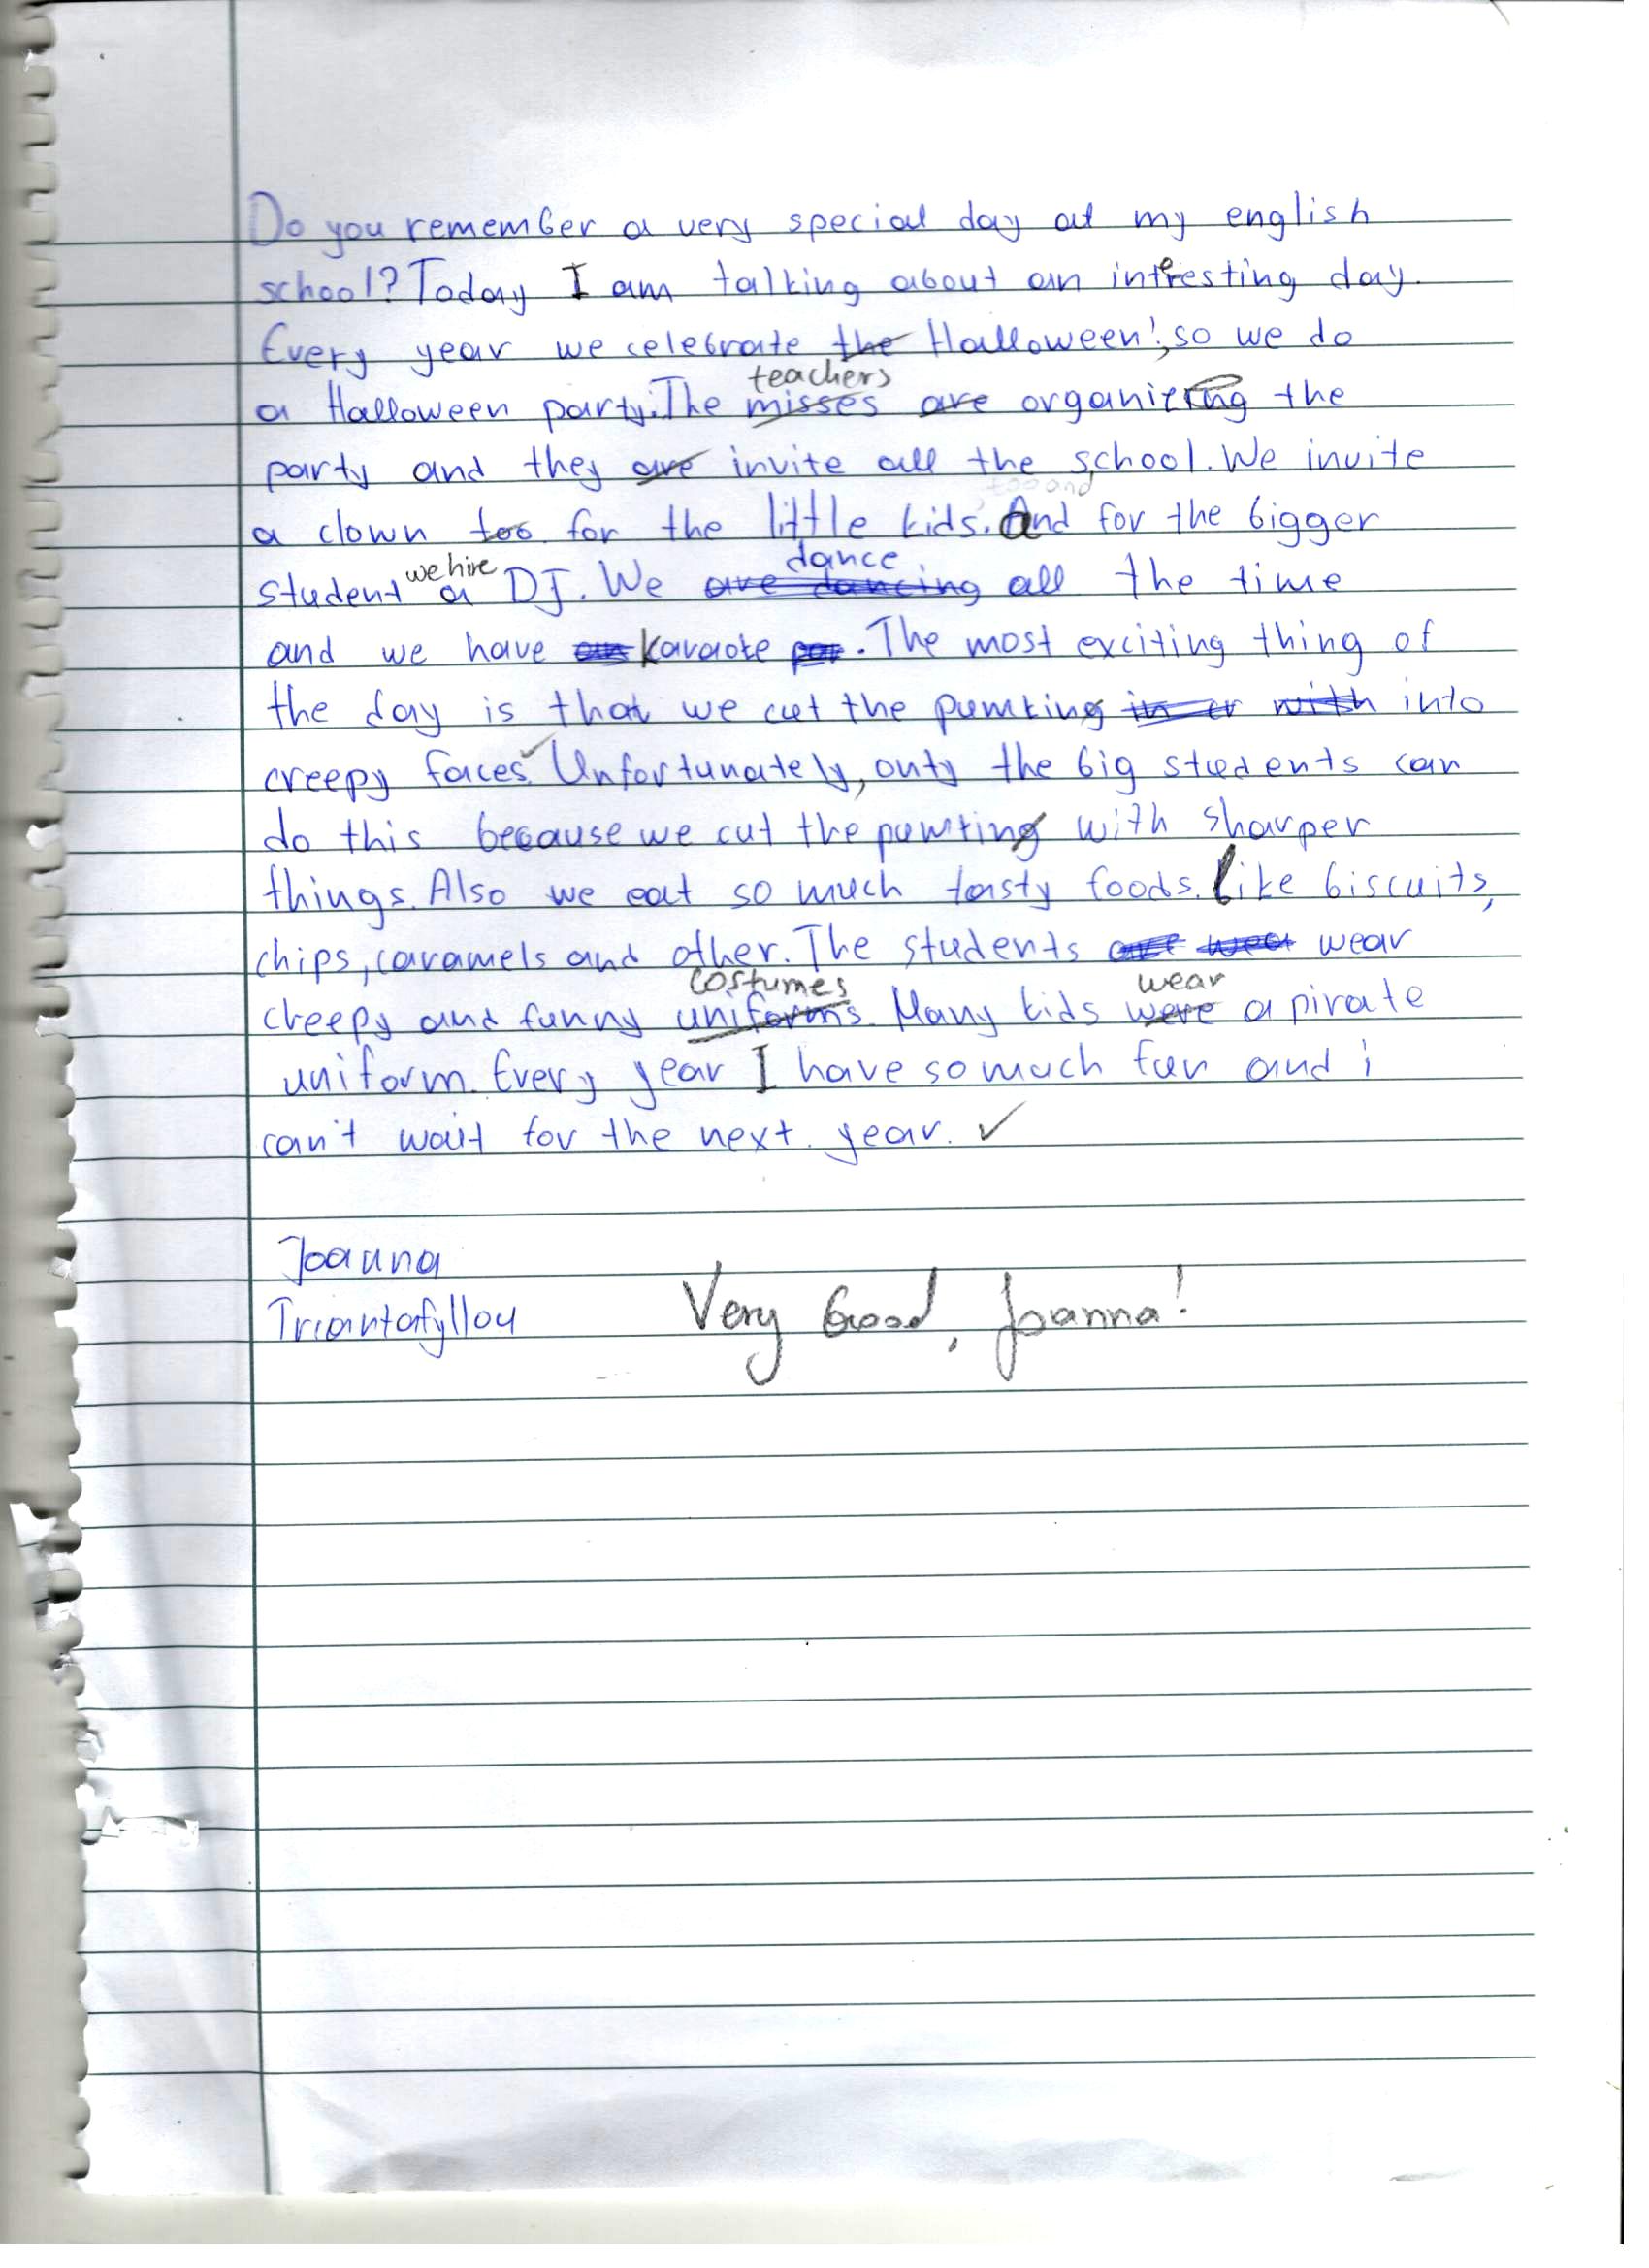 Do you remember a very special day at my english
school? Today I am talking about an interesting day.
Every year we celebrate the Halloween!, so we do
teachers
a Halloween party. The misses are organizing the
party and they are invite all the school. We invite
too and
a clown too for the little kids. And for the bigger
we hire dance
student a DJ. We are dancing all the time
and we have karaoke . The most exciting thing of
the day is that we cut the pumking in er with into
creepy faces. Unfortunately, only the big students can
do this because we cut the pumking with sharper
things. Also we eat so much tasty foods. like biscuits,
chips, caramels and other. The students wear
costumes wear
creepy and funny uniforms. Many kids were a pirate
uniform. Every year I have so much fun and i
can't wait for the next year. ✓
Joanna
Triantafyllou
Very Good, Joanna!